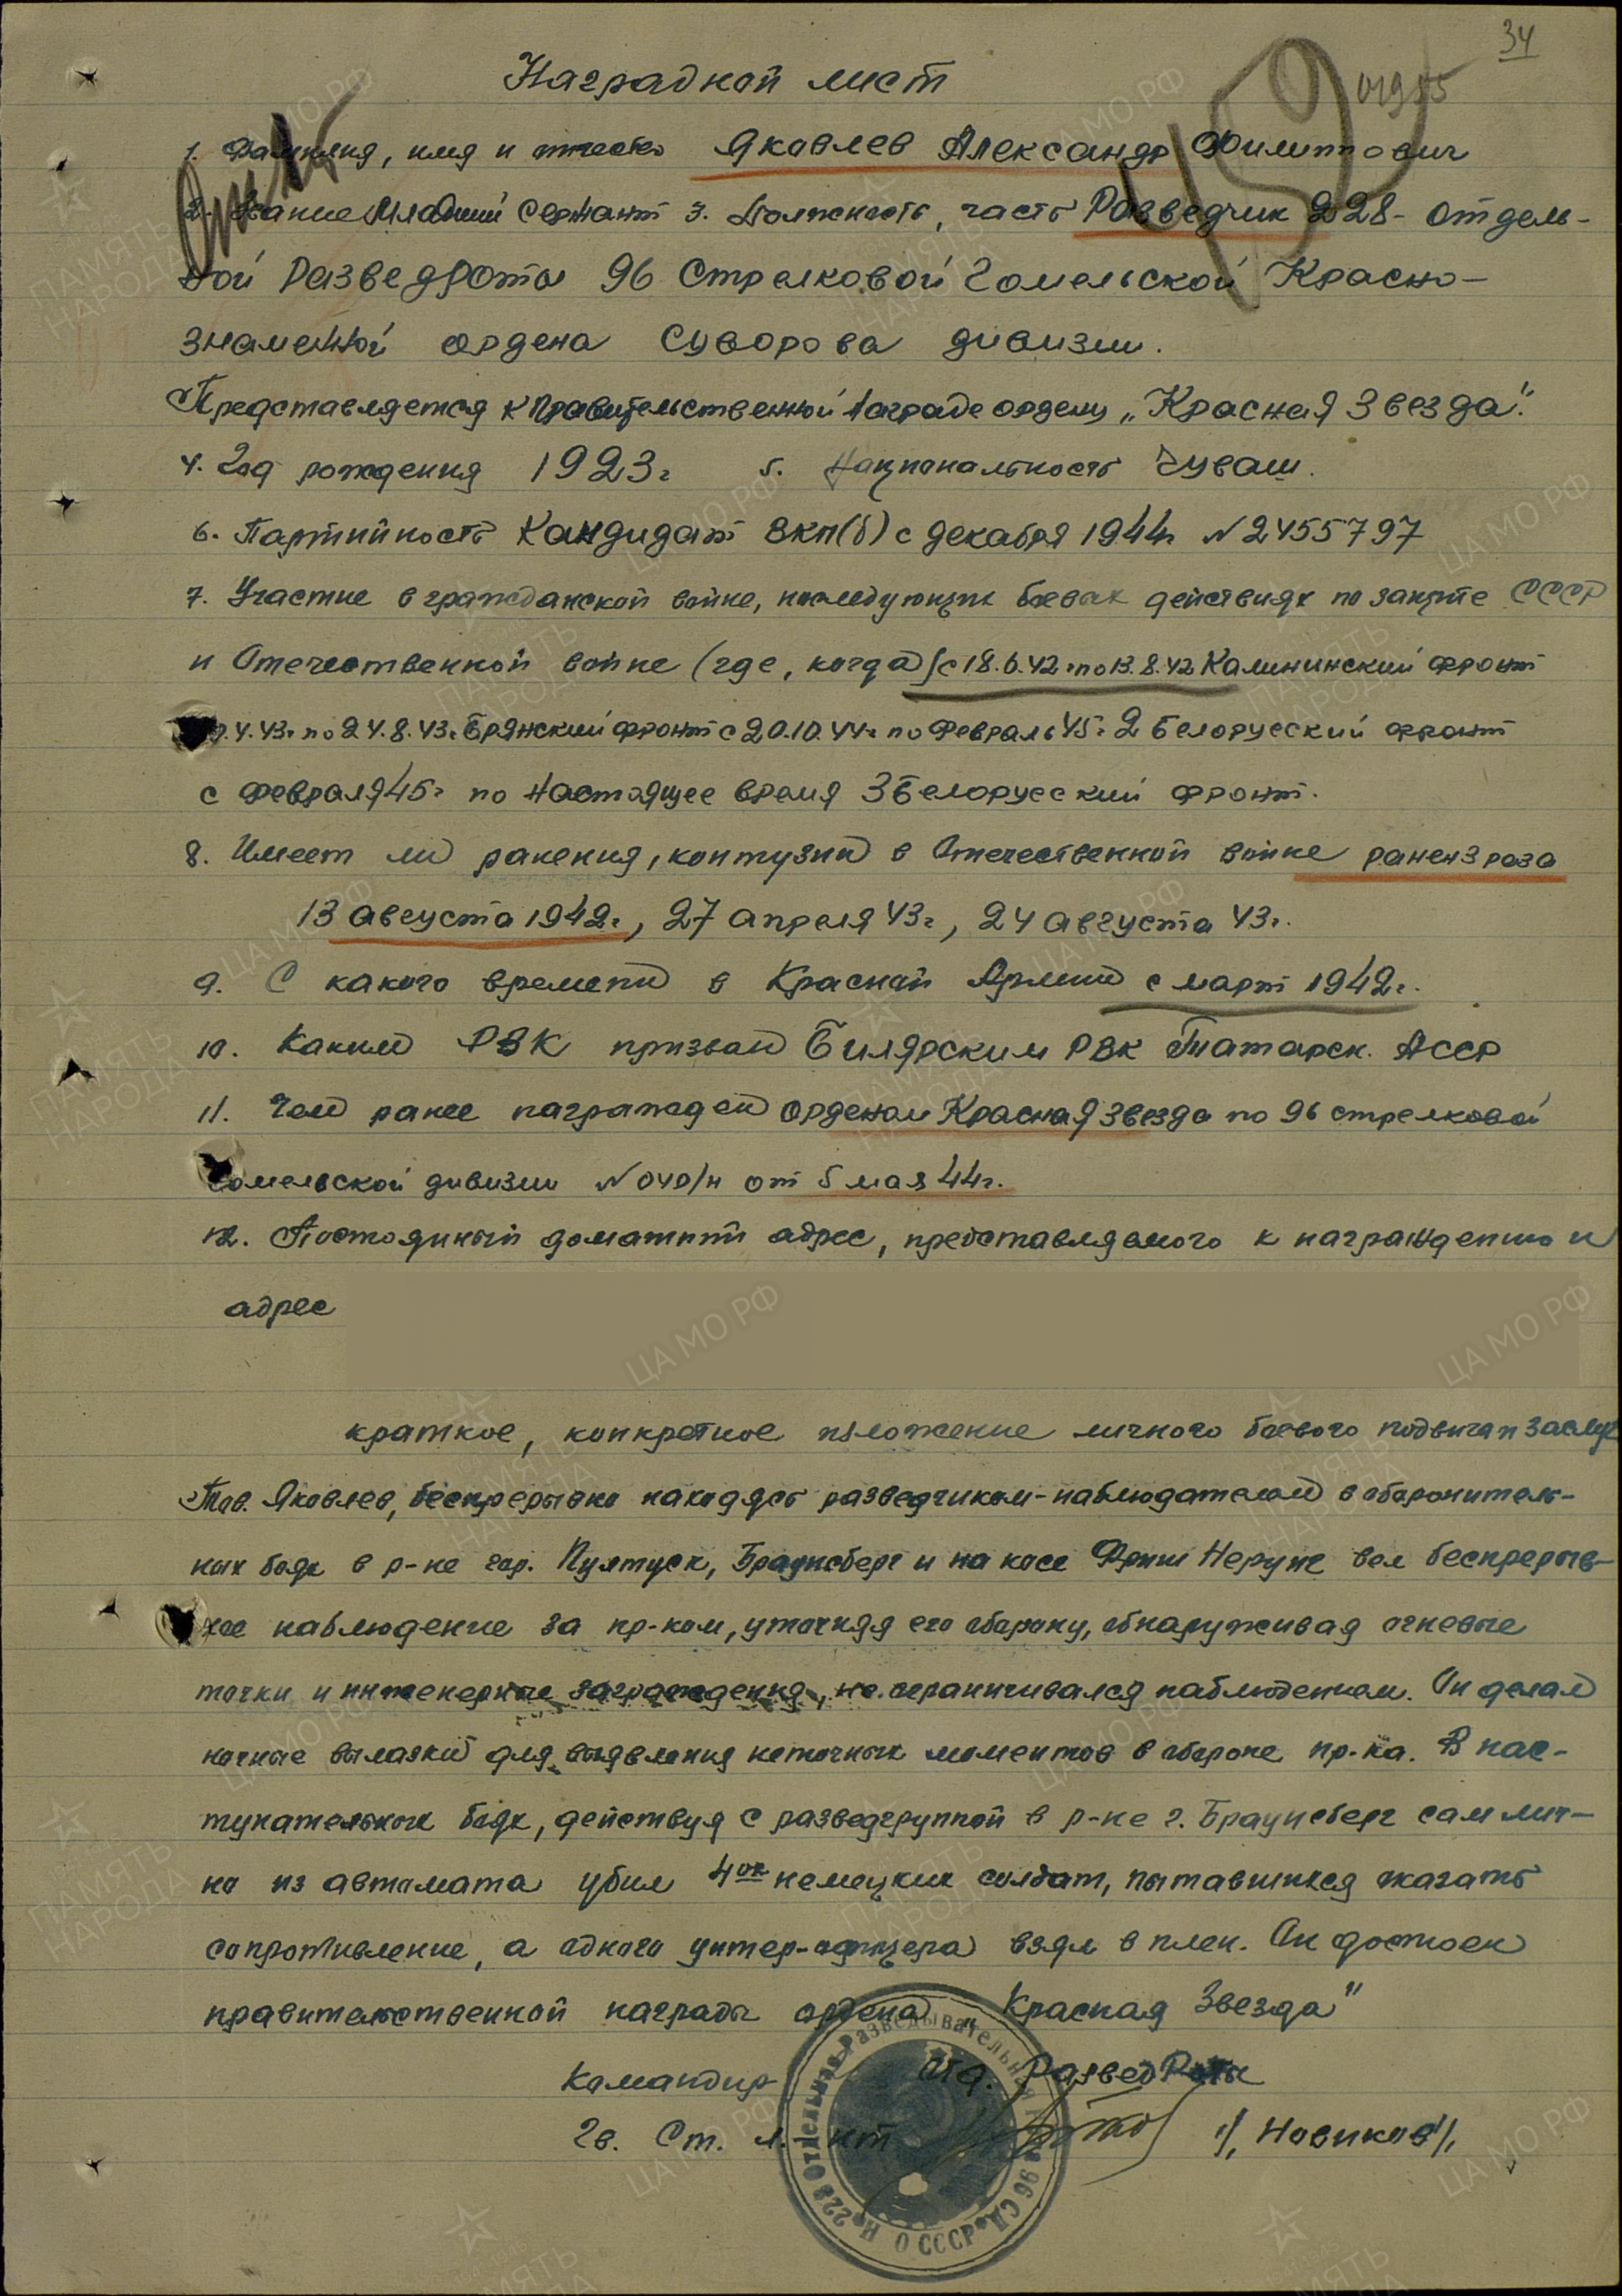 34
01955
Наградной лист
1. Фамилия, имя и отчество Яковлев Александр Филиппович
2. Звание Младший сержант 3. Должность, часть Разведчик 228- отдель-
ной Разведроты 96 Стрелковой Гомельской Красно-
знаменной ордена Суворова дивизии.
Представляется к Правительственной Награде ордену „Красная Звезда".
4. Год рождения 1923г 5. Национальность Чуваш.
6. Партийность Кандидат ВКП(б) с декабря 1944г N 2455797
7. Участие в гражданской войне, последующих боевых действиях по защите СССР
и Отечественной войне (где, когда) с 18.6.42г по 13.8.42 Калининский фронт
.4.43г по 24.8.43г Брянский фронт с 20.10.44г по Февраль 45г 2 Белорусский фронт
с февраля 45г по настоящее время 3 Белорусский фронт.
8. Имеет ли ранения, контузии в Отечественной войне ранен 3 раза
13 августа 1942г, 27 апреля 43г, 24 августа 43г.
9. С какого времени в Красной Армии с март 1942г.
10. Каким РВК призван Билярским РВК Татарск. АССР
11. Чем ранее награжден орденом Красная Звезда по 96 стрелковой
Гомельской дивизии N 040/н от 5 мая 44г.
12. Постоянный домашний адрес, представляемого к награждению и
адрес
краткое, конкретное изложение личного боевого подвига и заслуг
Тов. Яковлев, беспрерывно находясь разведчиком-наблюдателем в оборонитель-
ных боях в р-не гор. Пултуск, Браунсберг и на косе Фриш Нерунг вел беспрерыв-
ное наблюдение за пр-ком, уточняя его оборону, обнаруживая огневые
точки и инженерные заграждения, не ограничивался наблюдением. Он делал
ночные вылазки для выявления неточных моментов в обороне пр-ка. В нас-
тупательных боях, действуя с разведгруппой в р-не г. Браунсберг сам лич-
но из автомата убил 4ох немецких солдат, пытавшихся оказать
сопротивление, а одного унтер-офицера взял в плен. Он достоен
правительственной награды ордена „Красная Звезда"
Командир Отд. РазведРоты
Гв. Ст. л-нт /Новиков/
№ 228 Отдельная Разведывательная 96 СД
Н О СССР
ЦА МО РФ
ПАМЯТЬ НАРОДА